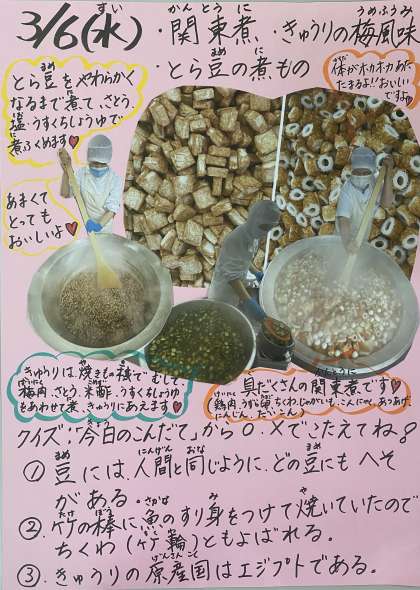 3/6(水) ・関東煮 ・きゅうりの梅風味
・とら豆の煮もの
とら豆をやわらかく
なるまで煮て、さとう、
塩・うすくちしょうゆで
煮ふくめます♥
体がホカホカあた
たまるよ!!おいしい
ですよ♥
あまくて
とっても
おいしいよ♥
きゅうりは、焼きもの機でむして、
梅肉、さとう、米酢、うすくちしょうゆ
をあわせて煮、きゅうりにあえます♥
具だくさんの関東煮です♥
(鶏肉、うずら卵、ちくわ、じゃがいも、こんにゃく、あつあげ、
にんじん、だいこん)
クイズ;「今日のこんだて」から○、×でこたえてね!
① 豆には、人間と同じように、どの豆にもへそ
がある。
②. 竹の棒に、魚のすり身をつけて焼いていたので
ちくわ(竹輪)ともよばれる.
③. きゅうりの原産国はエジプトである.